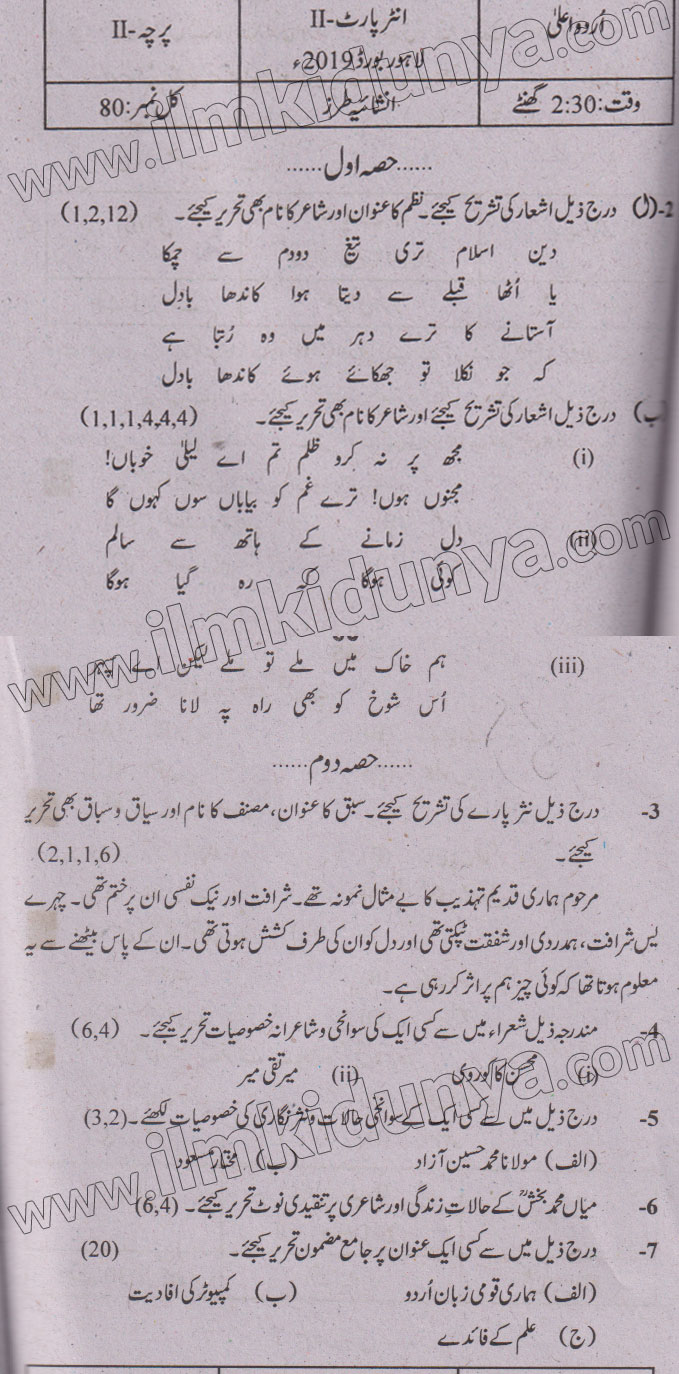 اُردو اعلیٰ	انٹر پارٹ-II	پرچہ-II
لاہور بورڈ 2019ء
وقت: 2:30 گھنٹے	انشائیہ طرز	کل نمبر: 80
......حصہ اول......
2-(ا) درج ذیل اشعار کی تشریح کیجئے۔ نظم کا عنوان اور شاعر کا نام بھی تحریر کیجئے۔ (1,2,12)
دین اسلام تری تیغ دودم سے چمکا
یا اُٹھا قبلے سے دیتا ہوا کاندھا بادل
آستانے کا ترے دہر میں وہ رُتبا ہے
کہ جو نکلا تو جھکائے ہوئے کاندھا بادل
(ب) درج ذیل اشعار کی تشریح کیجئے اور شاعر کا نام بھی تحریر کیجئے۔ (1,1,1,4,4,4)
(i) مجھ پر نہ کرو ظلم تم اے لیلیٰ خوباں!
مجنوں ہوں! ترے غم کو بیاباں سوں کہوں گا
(ii) دل زمانے کے ہاتھ سے سالم
کوئی ہوگا کہ رہ گیا ہوگا
(iii) ہم خاک میں ملے تو ملے لیکن اے سپہر
اُس شوخ کو بھی راہ پہ لانا ضرور تھا
......حصہ دوم......
3- درج ذیل نثر پارے کی تشریح کیجئے۔ سبق کا عنوان، مصنف کا نام اور سیاق و سباق بھی تحریر
کیجئے۔ (2,1,1,6)
مرحوم ہماری قدیم تہذیب کا بے مثال نمونہ تھے۔ شرافت اور نیک نفسی ان پر ختم تھی۔ چہرے
پس شرافت، ہمدردی اور شفقت ٹپکتی تھی اور دل کو ان کی طرف کشش ہوتی تھی۔ ان کے پاس بیٹھنے سے یہ
معلوم ہوتا تھا کہ کوئی چیز ہم پر اثر کر رہی ہے۔
4- مندرجہ ذیل شعراء میں سے کسی ایک کی سوانحی و شاعرانہ خصوصیات تحریر کیجئے۔ (6,4)
(i) محسن کاکوروی (ii) میر تقی میر
5- درج ذیل میں سے کسی ایک کے سوانحی حالات و نثر نگاری کی خصوصیات لکھئے۔ (3,2)
(الف) مولانا محمد حسین آزاد (ب) مختار مسعود
6- میاں محمد بخشؒ کے حالاتِ زندگی اور شاعری پر تنقیدی نوٹ تحریر کیجئے۔ (6,4)
7- درج ذیل میں سے کسی ایک عنوان پر جامع مضمون تحریر کیجئے۔ (20)
(الف) ہماری قومی زبان اُردو (ب) کمپیوٹر کی افادیت
(ج) علم کے فائدے
www.ilmkidunya.com
www.ilmkidunya.com
www.ilmkidunya.com